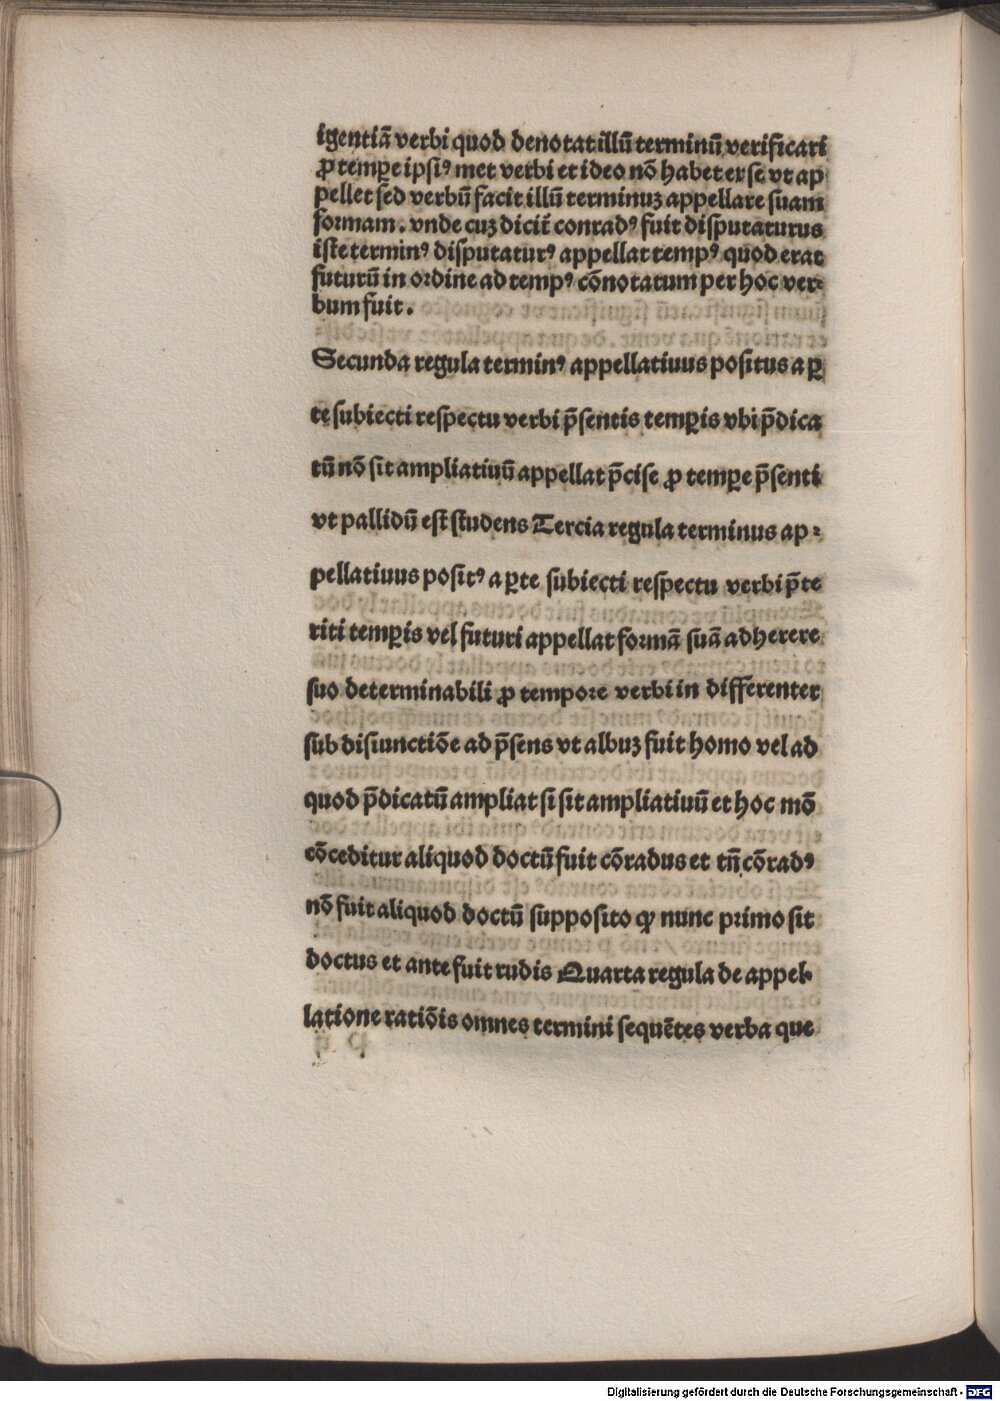 igentiā verbi quod denotat illū terminū verificari
ꝓ temꝑe ipsiꝰ met verbi et ideo nō habet ex se vt ap
pellet sed verbū facit illū terminuȝ appellare suam
formam. vnde cuȝ dicit̄ conradꝰ fuit disputaturus
iste terminꝰ disputaturꝰ appellat tempꝰ quod erat
futurū in ordine ad tempꝰ cōnotatum per hoc ver⸗
bum fuit.
Secunda regula terminꝰ appellatiuus positus a ꝑ
te subiecti respectu verbi p̄sentis temꝑis vbi p̄dica
tū nō sit ampliatiuū appellat p̄cise ꝓ temꝑe p̄senti
vt pallidū est studens Tercia regula terminus ap⸗
pellatiuus positꝰ a ꝑte subiecti respectu verbi p̄te
riti temꝑis vel futuri appellat formā suā adherere
suo determinabili ꝓ tempore verbi in differenter
sub disiunctiōe ad p̄sens vt albuȝ fuit homo vel ad
quod p̄dicatū ampliat si sit ampliatiuū et hoc mō
cōceditur aliquod doctū fuit cōradus et tn̄ cōradꝰ
nō fuit aliquod doctū supposito ꝙ nunc primo sit
doctus et ante fuit rudis Quarta regula de appel⸗
latione ratiōis omnes termini sequētes verba que
Digitalisierung gefördert durch die Deutsche Forschungsgemeinschaft - DFG